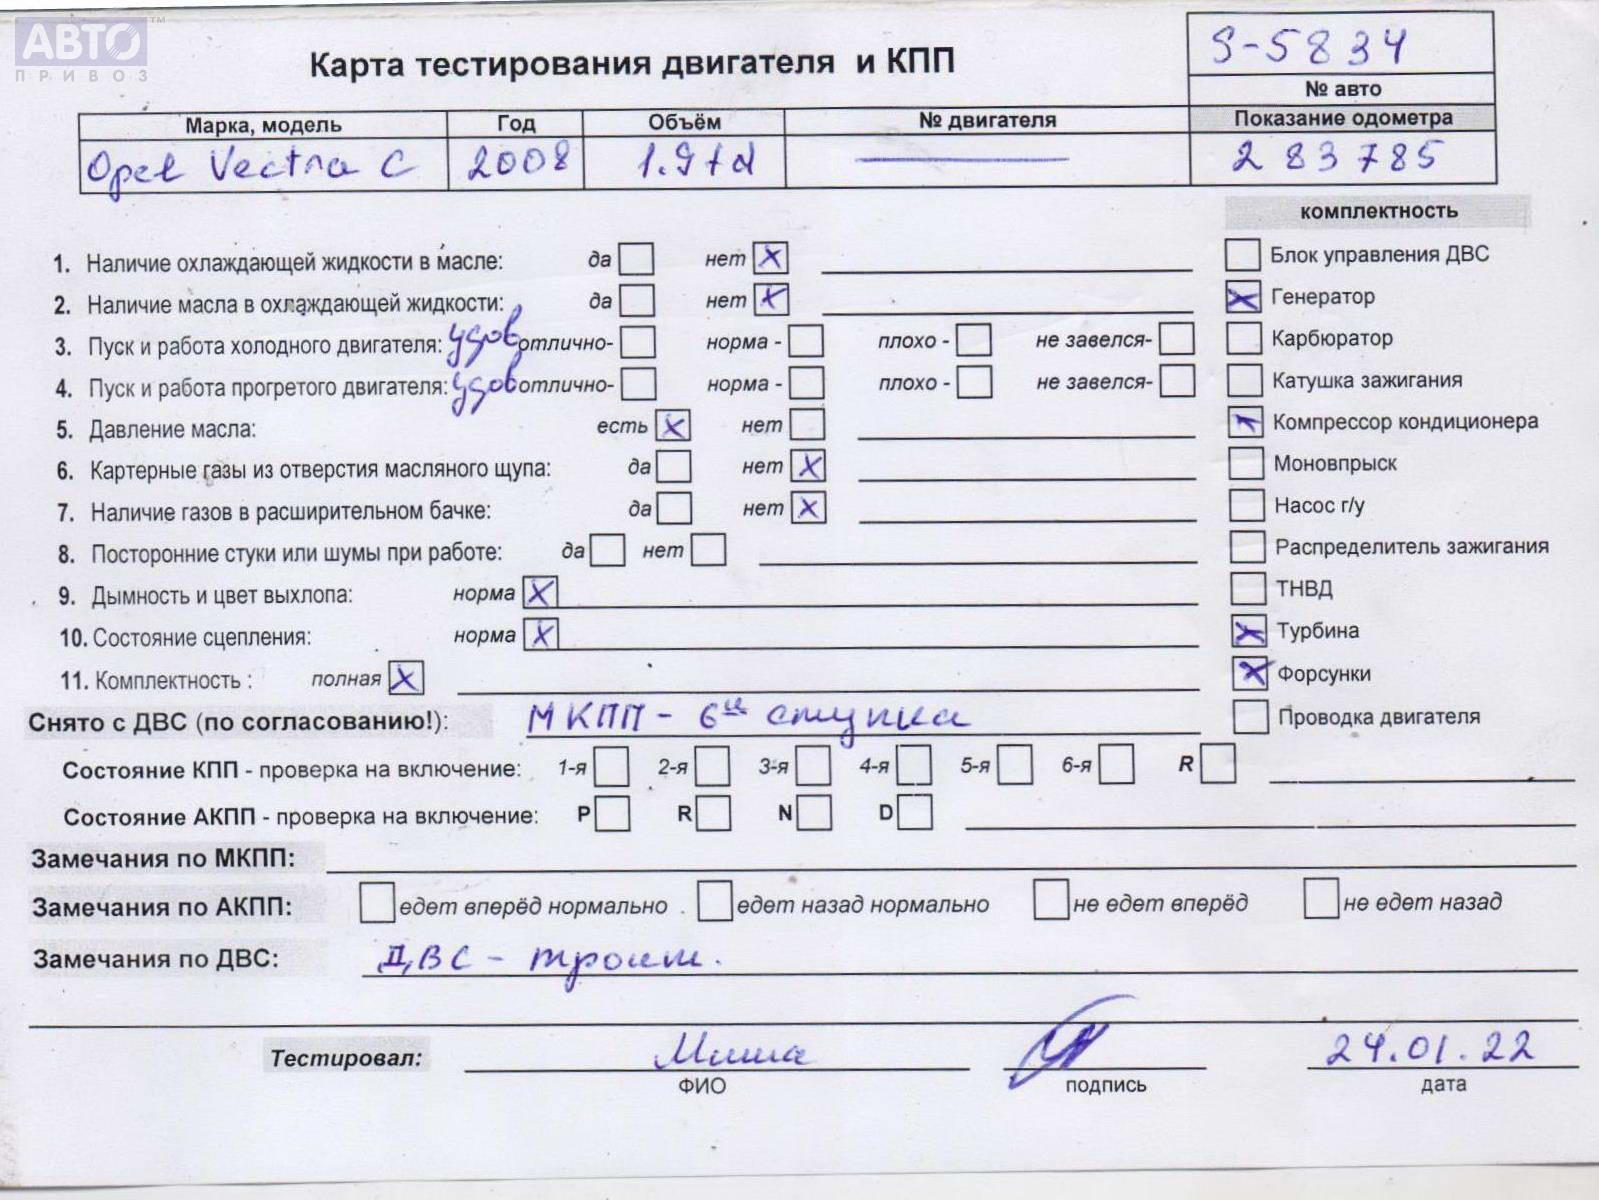 АВТО ™
ПРИВОЗ
Карта тестирования двигателя и КПП
S-5834
№ авто
Марка, модель Год Объём № двигателя Показание одометра
Opel Vectra C 2008 1.9td — 283785
комплектность
1. Наличие охлаждающей жидкости в масле: да нет X
2. Наличие масла в охлаждающей жидкости: да нет X
3. Пуск и работа холодного двигателя: удов отлично- норма - плохо - не завелся-
4. Пуск и работа прогретого двигателя: удов отлично- норма - плохо - не завелся-
5. Давление масла: есть X нет
6. Картерные газы из отверстия масляного щупа: да нет X
7. Наличие газов в расширительном бачке: да нет X
8. Посторонние стуки или шумы при работе: да нет
9. Дымность и цвет выхлопа: норма X
10. Состояние сцепления: норма X
11. Комплектность : полная X
Блок управления ДВС
X Генератор
Карбюратор
Катушка зажигания
X Компрессор кондиционера
Моновпрыск
Насос г/у
Распределитель зажигания
ТНВД
X Турбина
X Форсунки
Проводка двигателя
Снято с ДВС (по согласованию!): МКПП - 6ти ступка
Состояние КПП - проверка на включение: 1-я 2-я 3-я 4-я 5-я 6-я R
Состояние АКПП - проверка на включение: P R N D
Замечания по МКПП:
Замечания по АКПП: едет вперёд нормально едет назад нормально не едет вперёд не едет назад
Замечания по ДВС: ДВС - троит.
Тестировал: Миша 24.01.22
ФИО подпись дата